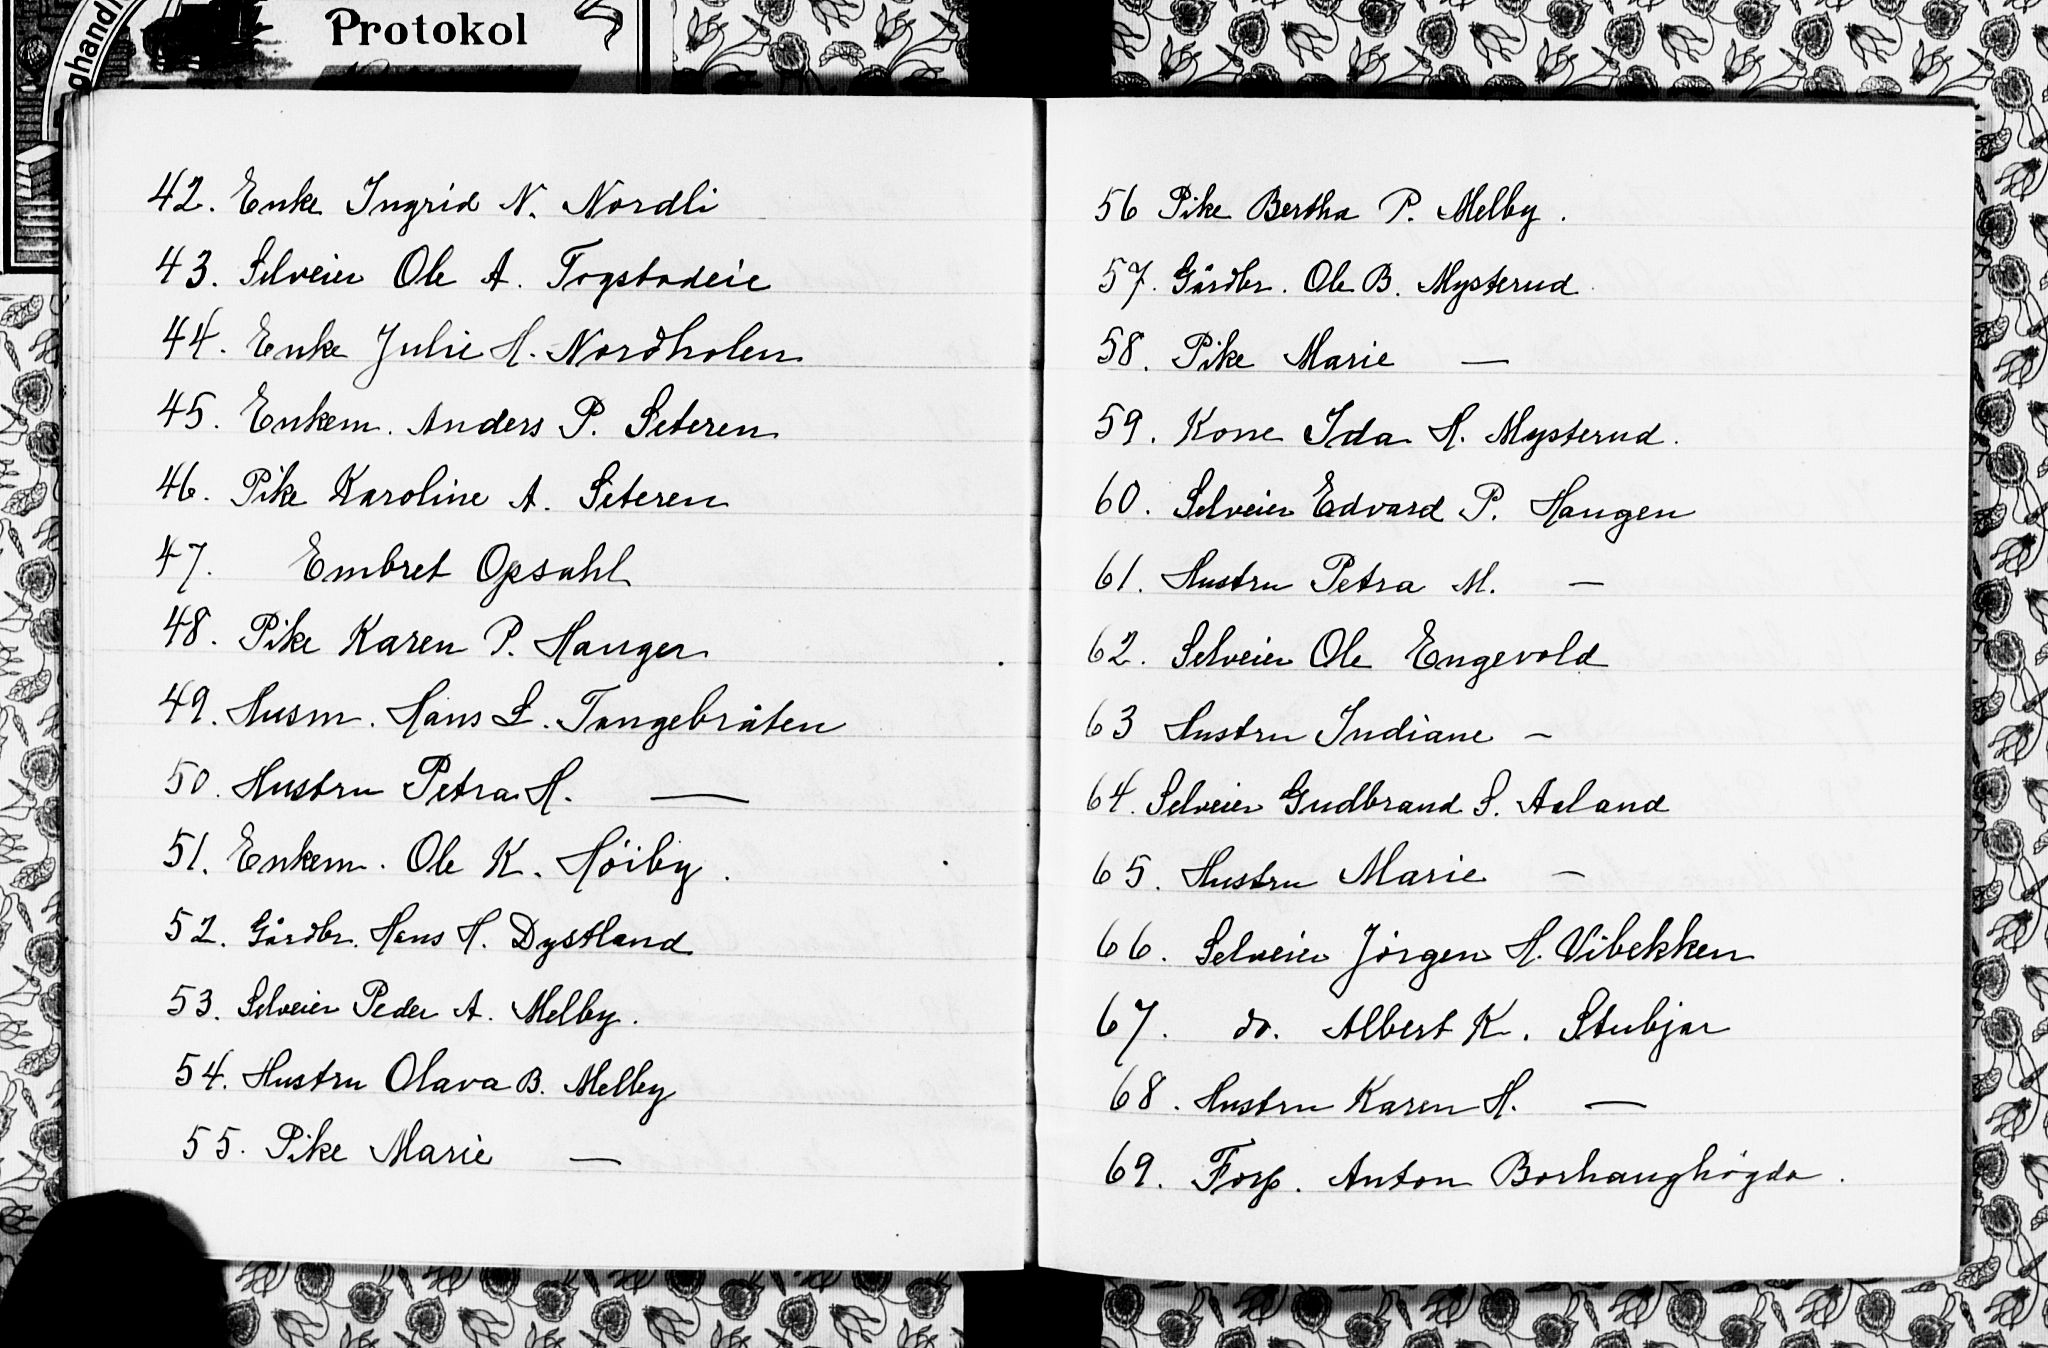 Protokol
42. Enke Ingrid N. Nordli
43. Selveier Ole A. Togstadeie
44. Enke Julie H. Nordholen
45. Enkem. Anders P. Seteren
46. Pike Karoline A. Seteren
47. Embret Opsahl
48. Pike Karen P. Haugen
49. Husm. Hans L. Tangebråten
50. Hustru Petra H. —
51. Enkem. Ole K. Höiby.
52. Gårdbr. Hans H. Dystland
53. Selveier Peder A. Melby.
54. Hustru Olava B. Melby
55. Pike Marie —
56 Pike Bertha P. Melby.
57. Gårdbr. Ole B. Mysterud
58. Pike Marie —
59. Kone Ida H. Mysterud.
60. Selveier Edvard P. Haugen
61. Hustru Petra M. —
62. Selveier Ole Engevold
63 Hustru Indiane —
64. Selveier Gudbrand S. Aaland
65. Hustru Marie —
66. Selveier Jörgen H. Vibekken
67. do. Albert K. Stubjar
68. Hustru Karen H. —
69. Forp. Anton Borhaughögda.